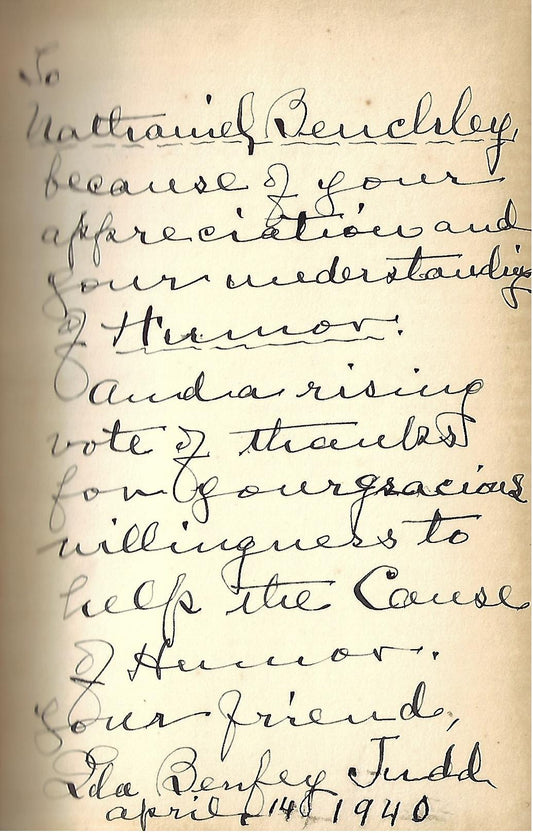 To
Nathaniel Benchley,
because of your
appreciation and
your understanding
of Humor.
And a rising
vote of thanks
for your gracious
willingness to
help the Cause
of Humor.
Your friend,
Ida Benfey Judd
april 14 1940